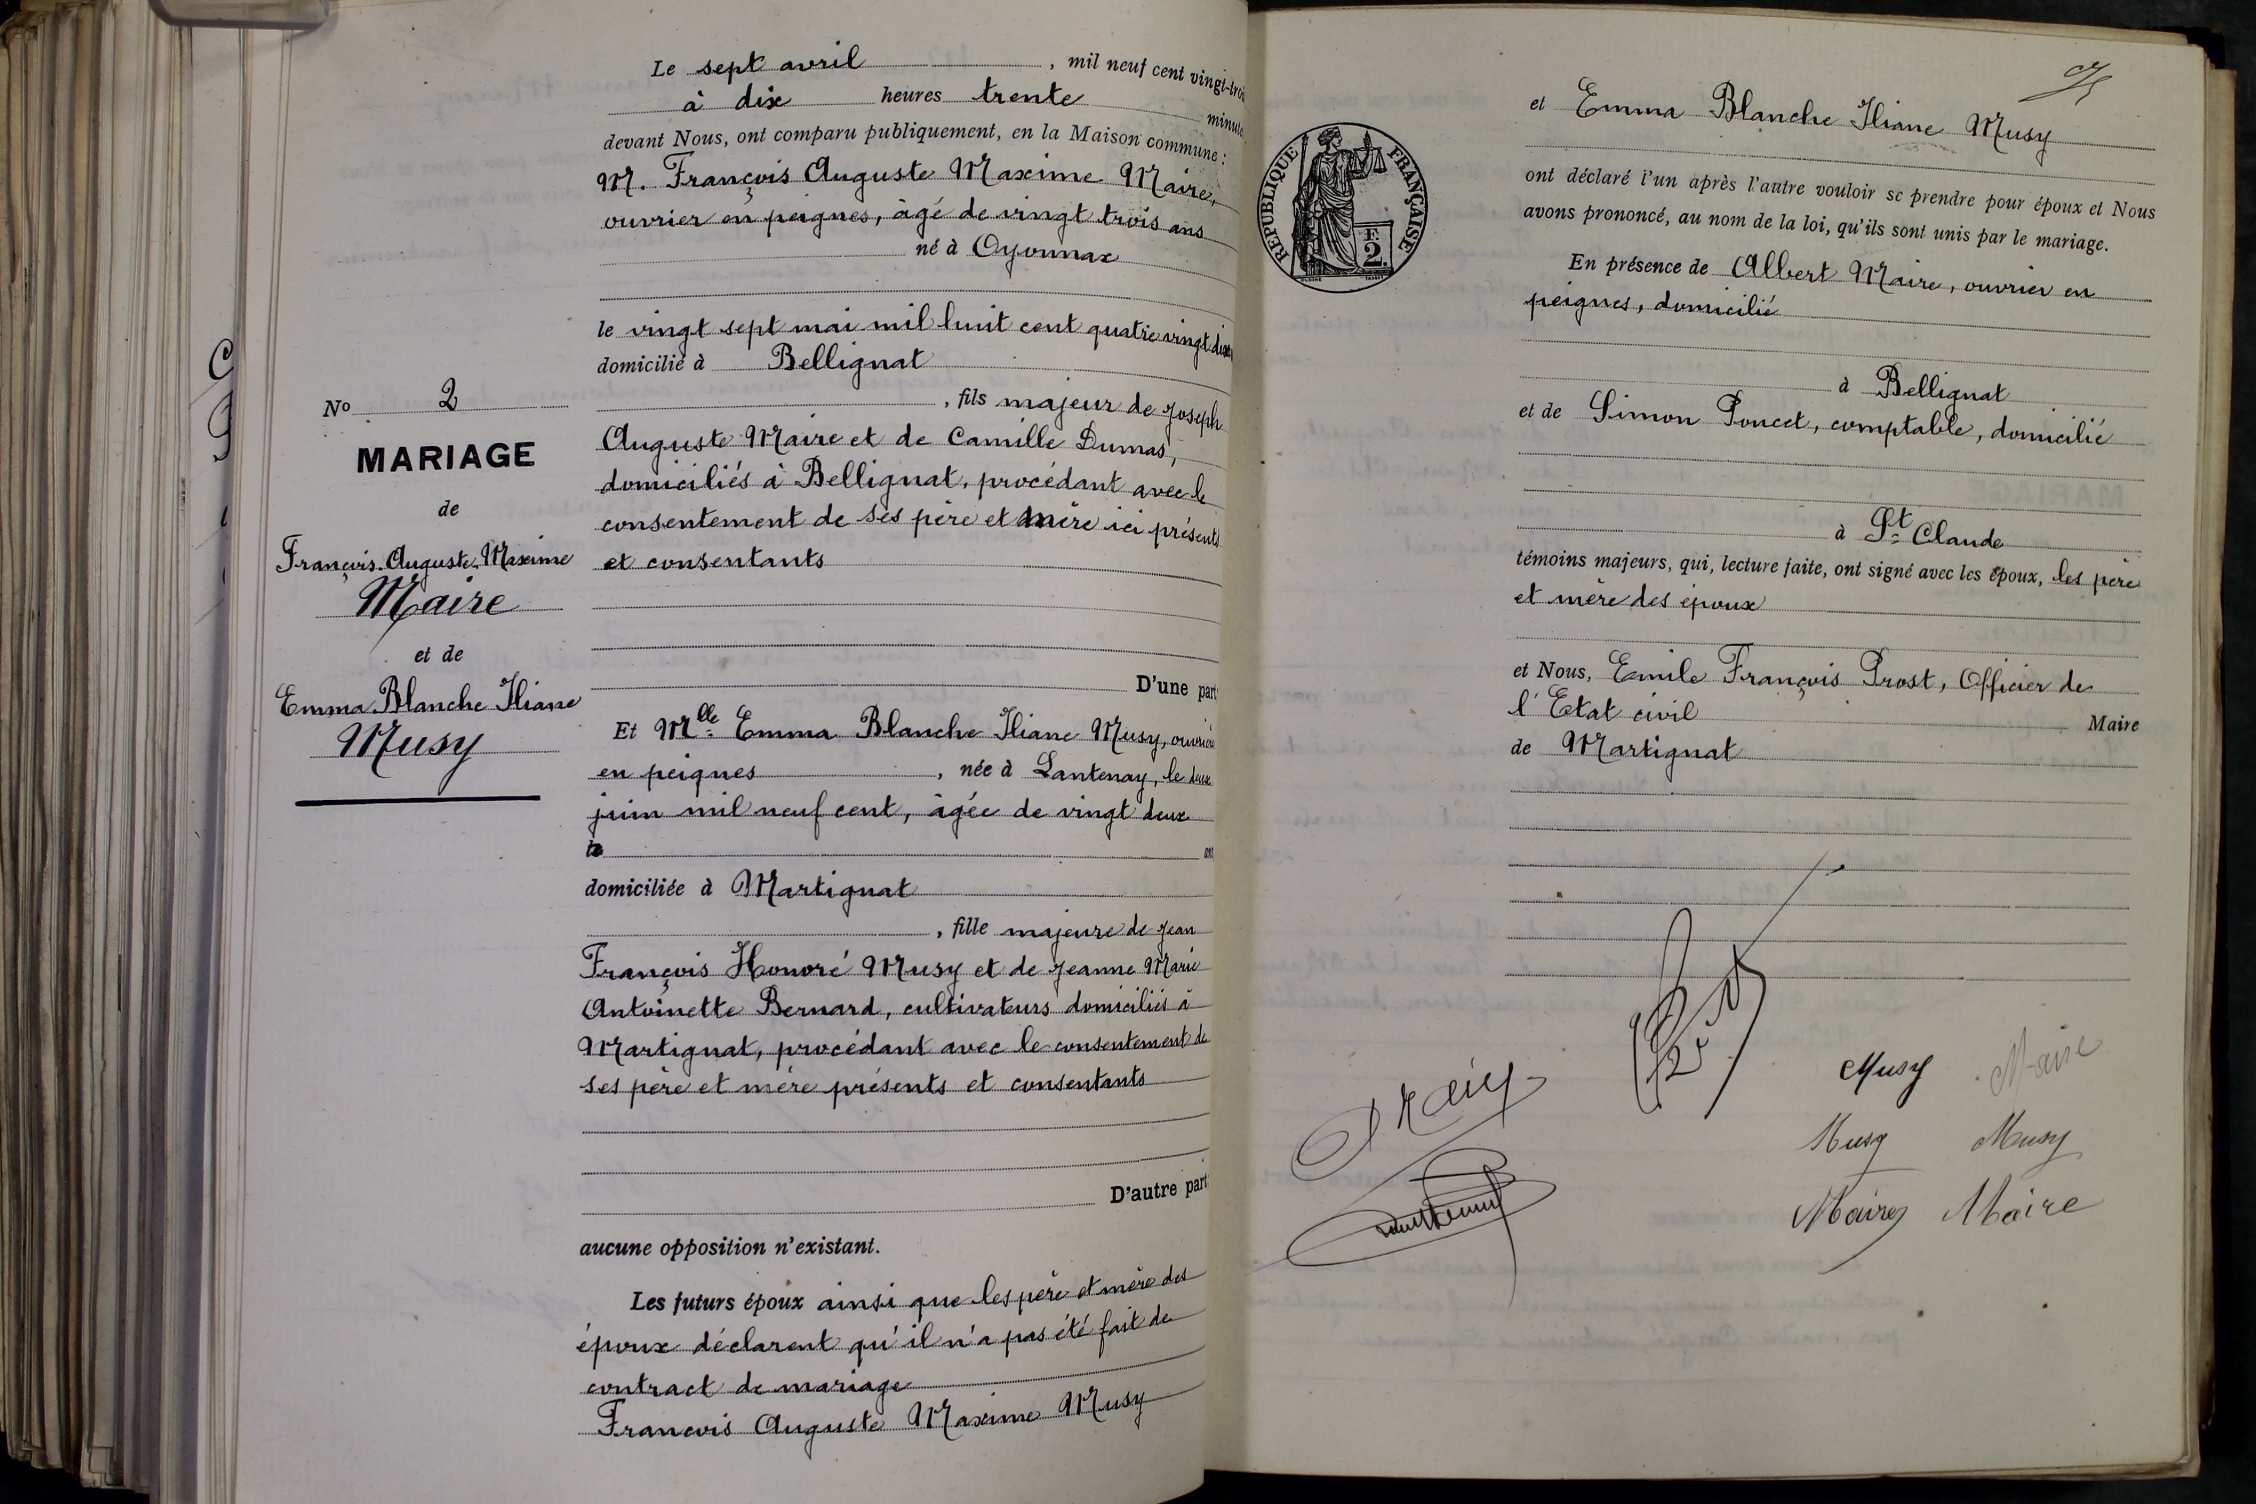 Le sept avril, mil neuf cent vingt-trois
à dix heures trente minutes
devant Nous, ont comparu publiquement, en la Maison commune :
M. François Auguste Maxime Maire,
ouvrier en peignes, âgé de vingt trois ans
né à Oyonnax
le vingt sept mai mil huit cent quatre vingt dix
domicilié à Bellignat
, fils majeur de Joseph
Auguste Maire et de Camille Dumas,
domiciliés à Bellignat, procédant avec le
consentement de ses père et mère ici présents
et consentants
D'une part
Et Mlle Emma Blanche Iliane Musy, ouvrière
en peignes, née à Lantenay, le deux
juin mil neuf cent, âgée de vingt deux
ans
domiciliée à Martignat
, fille majeure de Jean
François Honoré Musy et de Jeanne Marie
Antoinette Bernard, cultivateurs domiciliés à
Martignat, procédant avec le consentement de
ses père et mère présents et consentants
D'autre part
aucune opposition n'existant.
Les futurs époux ainsi que les père et mère des
époux déclarent qu'il n'a pas été fait de
contract de mariage
François Auguste Maxime Musy
No 2
MARIAGE
de
François Auguste Maxime
Maire
et de
Emma Blanche Iliane
Musy
RÉPUBLIQUE FRANÇAISE
F.
2.
et Emma Blanche Iliane Musy
ont déclaré l'un après l'autre vouloir se prendre pour époux et Nous
avons prononcé, au nom de la loi, qu'ils sont unis par le mariage.
En présence de Albert Maire, ouvrier en
peignes, domicilié
à Bellignat
et de Simon Poncet, comptable, domicilié
à St Claude
témoins majeurs, qui, lecture faite, ont signé avec les époux, les père
et mère des époux
et Nous, Emile François Prost, Officier de
l'Etat civil Maire
de Martignat
Musy Maire
Musy Musy
Maire Maire